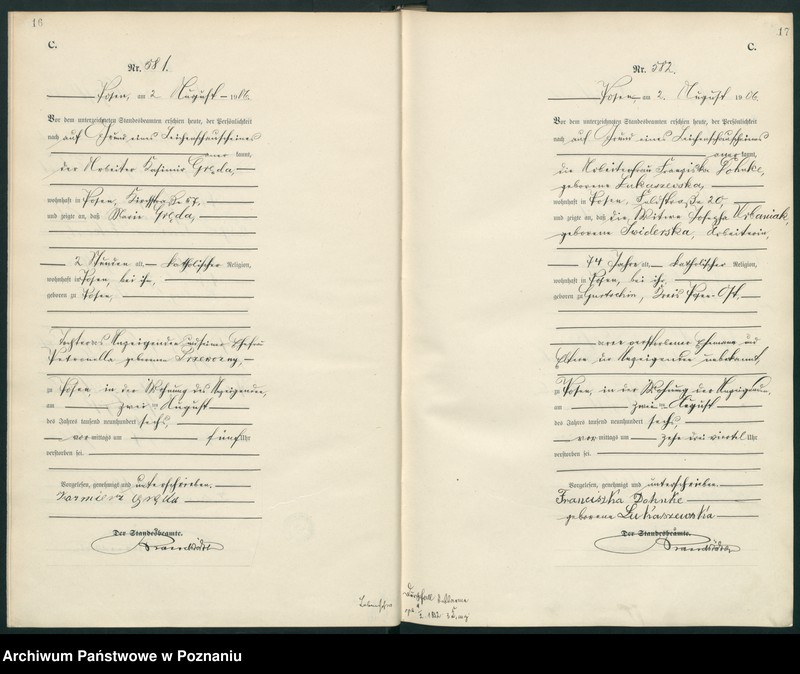 16
C.
Nr. 581.
Posen, am 2. August 1906.
Vor dem unterzeichneten Standesbeamten erschien heute, der Persönlichkeit
nach auf Grund eines Leichenschauscheines
aner kannt,
der Arbeiter Kasimir Gręda,
wohnhaft in Posen,
und zeigte an, daß Marie Gręda,
2 Stunden alt, katholischer Religion,
wohnhaft in Posen, bei ihm,
geboren zu Posen,
Tochter des Anzeigenden und seiner Ehefrau
Petronella geborene
zu Posen, in der Wohnung des Anzeigenden,
am zwei ten August
des Jahres tausend neunhundert sechs,
vor mittags um fünf Uhr
verstorben sei.
Vorgelesen, genehmigt und unterschrieben.
Kazmierz Gręda
Der Standesbeamte.
17
C.
Nr. 582.
Posen, am 2. August 1906.
Vor dem unterzeichneten Standesbeamten erschien heute, der Persönlichkeit
nach auf Grund eines Leichenschauscheines
aner kannt,
die Arbeiterfrau Franziska Dohnke,
geborene Lukaszewska,
wohnhaft in Posen, Feldstraße 20,
und zeigte an, daß die Witwe Josepha Urbaniak,
geborene Swiderska, Arbeiterin,
74 Jahre alt, katholischer Religion,
wohnhaft in Posen, bei ihr,
geboren zu Kreis Posen-Ost,
verstorbene Ehemann und
Eltern der unbekannt,
zu Posen, in der Wohnung der Anzeigenden,
am zwei ten August
des Jahres tausend neunhundert sechs,
vor mittags um zehn drei viertel Uhr
verstorben sei.
Vorgelesen, genehmigt und unterschrieben.
Franciszka Dohnke
geborene Lukaszewska
Der Standesbeamte.
Archiwum Państwowe w Poznaniu